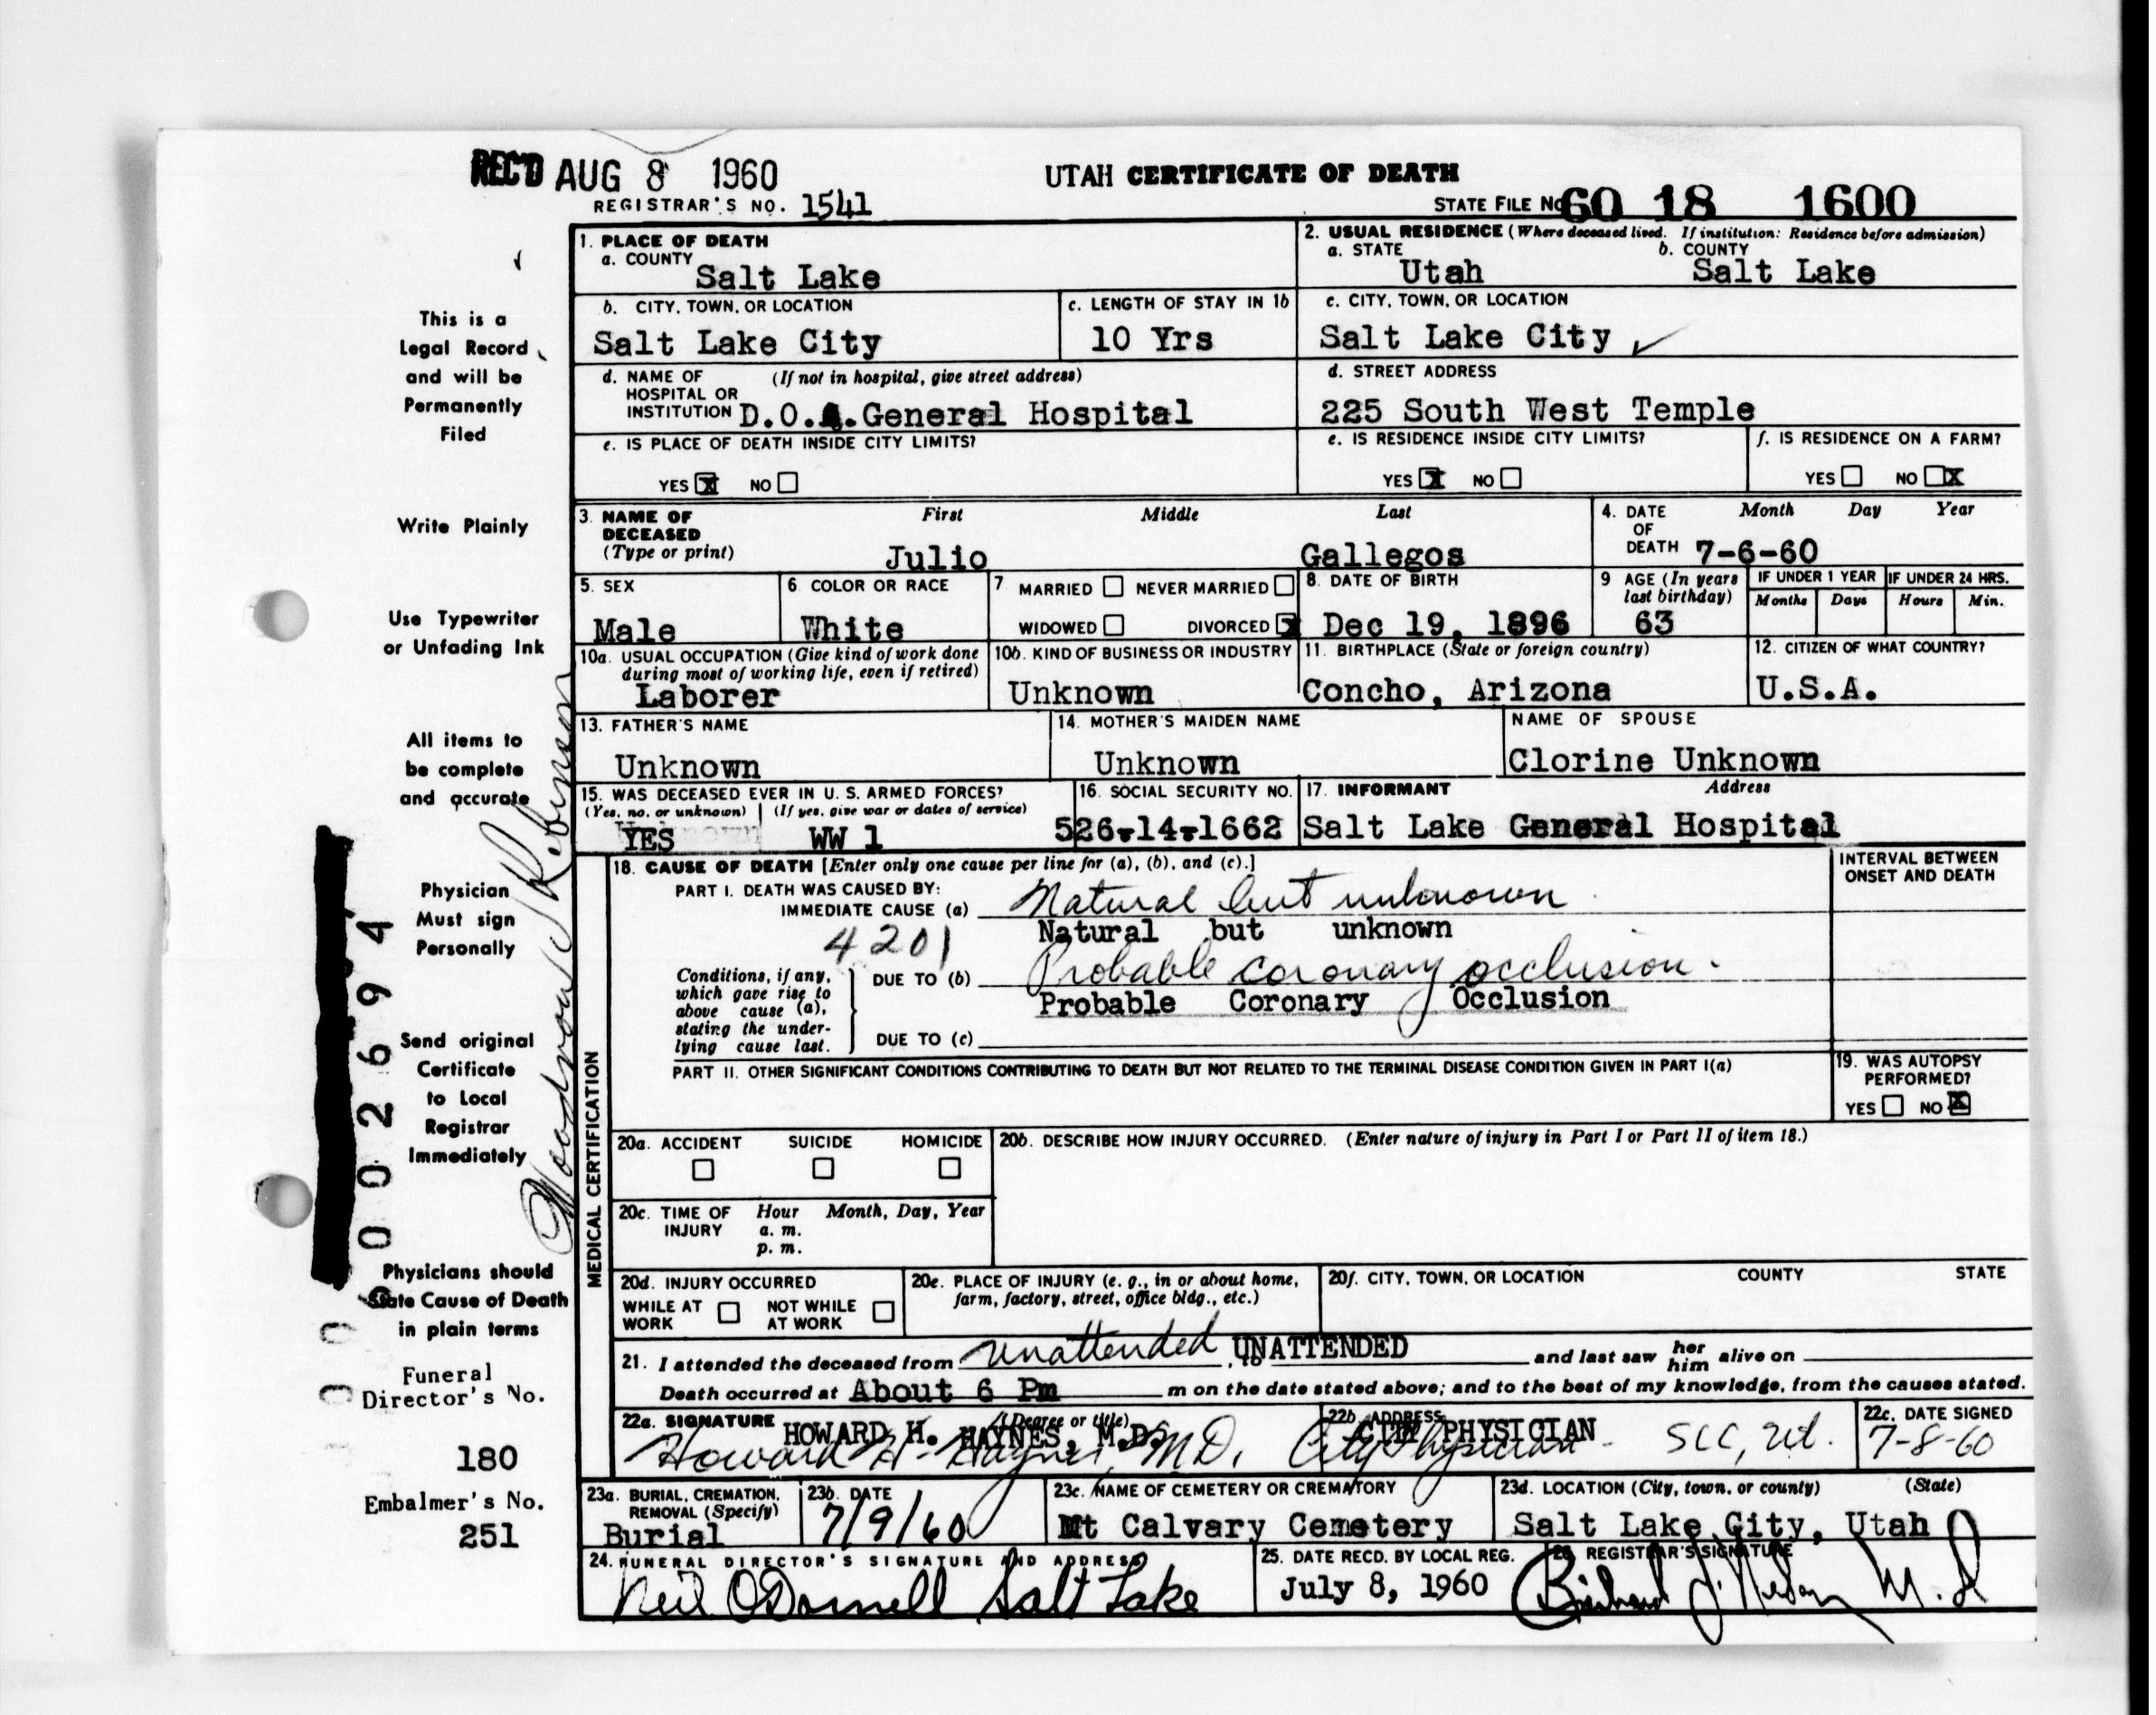 REC'D AUG 8 1960
UTAH CERTIFICATE OF DEATH
REGISTRAR'S NO. 1541
STATE FILE No 60 18 1600
This is a
Legal Record
and will be
Permanently
Filed
Write Plainly
Use Typewriter
or Unfading Ink
All items to
be complete
and accurate
Physician
Must sign
Personally
Send original
Certificate
to Local
Registrar
Immediately
Physicians should
State Cause of Death
in plain terms
Funeral
Director's No.
180
Embalmer's No.
251
Woodrow S Robinson
002694
1. PLACE OF DEATH
a. COUNTY
Salt Lake
2. USUAL RESIDENCE (Where deceased lived. If institution: Residence before admission)
a. STATE b. COUNTY
Utah Salt Lake
b. CITY, TOWN, OR LOCATION
Salt Lake City
c. LENGTH OF STAY IN 1b
10 Yrs
c. CITY, TOWN, OR LOCATION
Salt Lake City
d. NAME OF (If not in hospital, give street address)
HOSPITAL OR
INSTITUTION D.O.A. General Hospital
d. STREET ADDRESS
225 South West Temple
e. IS PLACE OF DEATH INSIDE CITY LIMITS?
YES X NO
e. IS RESIDENCE INSIDE CITY LIMITS?
YES X NO
f. IS RESIDENCE ON A FARM?
YES NO X
3. NAME OF DECEASED (Type or print)
First Middle Last
Julio Gallegos
4. DATE OF DEATH
Month Day Year
7-6-60
5. SEX
Male
6 COLOR OR RACE
White
7 MARRIED NEVER MARRIED
WIDOWED DIVORCED X
8. DATE OF BIRTH
Dec 19, 1896
9 AGE (In years last birthday)
63
IF UNDER 1 YEAR IF UNDER 24 HRS.
Months Days Hours Min.
10a. USUAL OCCUPATION (Give kind of work done
during most of working life, even if retired)
Laborer
10b. KIND OF BUSINESS OR INDUSTRY
Unknown
11. BIRTHPLACE (State or foreign country)
Concho, Arizona
12. CITIZEN OF WHAT COUNTRY?
U.S.A.
13. FATHER'S NAME
Unknown
14. MOTHER'S MAIDEN NAME
Unknown
NAME OF SPOUSE
Clorine Unknown
15. WAS DECEASED EVER IN U. S. ARMED FORCES?
(Yes, no, or unknown) (If yes, give war or dates of service)
YES WW 1
16. SOCIAL SECURITY NO.
526-14-1662
17. INFORMANT Address
Salt Lake General Hospital
MEDICAL CERTIFICATION
18. CAUSE OF DEATH [Enter only one cause per line for (a), (b), and (c).]
INTERVAL BETWEEN
ONSET AND DEATH
PART I. DEATH WAS CAUSED BY:
IMMEDIATE CAUSE (a) Natural but unknown
Natural but unknown
4201
Conditions, if any,
which gave rise to
above cause (a),
stating the under-
lying cause last.
DUE TO (b) Probable coronary occlusion.
Probable Coronary Occlusion
DUE TO (c)
PART II. OTHER SIGNIFICANT CONDITIONS CONTRIBUTING TO DEATH BUT NOT RELATED TO THE TERMINAL DISEASE CONDITION GIVEN IN PART I(a)
19. WAS AUTOPSY
PERFORMED?
YES NO X
20a. ACCIDENT SUICIDE HOMICIDE
20b. DESCRIBE HOW INJURY OCCURRED. (Enter nature of injury in Part I or Part II of item 18.)
20c. TIME OF INJURY
Hour Month, Day, Year
a. m.
p. m.
20d. INJURY OCCURRED
WHILE AT WORK NOT WHILE AT WORK
20e. PLACE OF INJURY (e. g., in or about home,
farm, factory, street, office bldg., etc.)
20f. CITY, TOWN, OR LOCATION COUNTY STATE
21. I attended the deceased from unattended UNATTENDED and last saw her him alive on
Death occurred at About 6 Pm m on the date stated above; and to the best of my knowledge, from the causes stated.
22a. SIGNATURE (Degree or title)
HOWARD H. HAYNES, M.D.
Howard H. Haynes, M.D.
22b. ADDRESS
CITY PHYSICIAN
City Physician - SLC, Ut.
22c. DATE SIGNED
7-8-60
23a. BURIAL, CREMATION,
REMOVAL (Specify)
Burial
23b. DATE
7/9/60
23c. NAME OF CEMETERY OR CREMATORY
Mt Calvary Cemetery
23d. LOCATION (City, town, or county) (State)
Salt Lake City, Utah
24. FUNERAL DIRECTOR'S SIGNATURE AND ADDRESS
Neil O'Donnell Salt Lake
25. DATE RECD. BY LOCAL REG.
July 8, 1960
26. REGISTRAR'S SIGNATURE
M.D